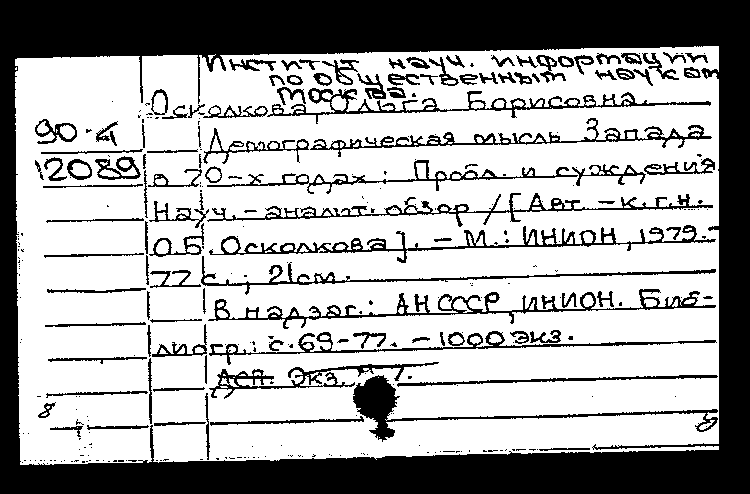 Институт науч. информации
по общественным наукам
Москва.
Осколкова, Ольга Борисовна.
90-4
Демографическая мысль Запада
12089
в 70-х годах: Пробл. и суждения
Науч.-аналит. обзор / [Авт. - к.г.н.
О.Б. Осколкова]. - М.: ИНИОН, 1979.-
77 с.; 21см.
В надзаг.: АН СССР, ИНИОН. Биб-
лиогр.: с. 69-77. - 1000 экз.
Экз.
8